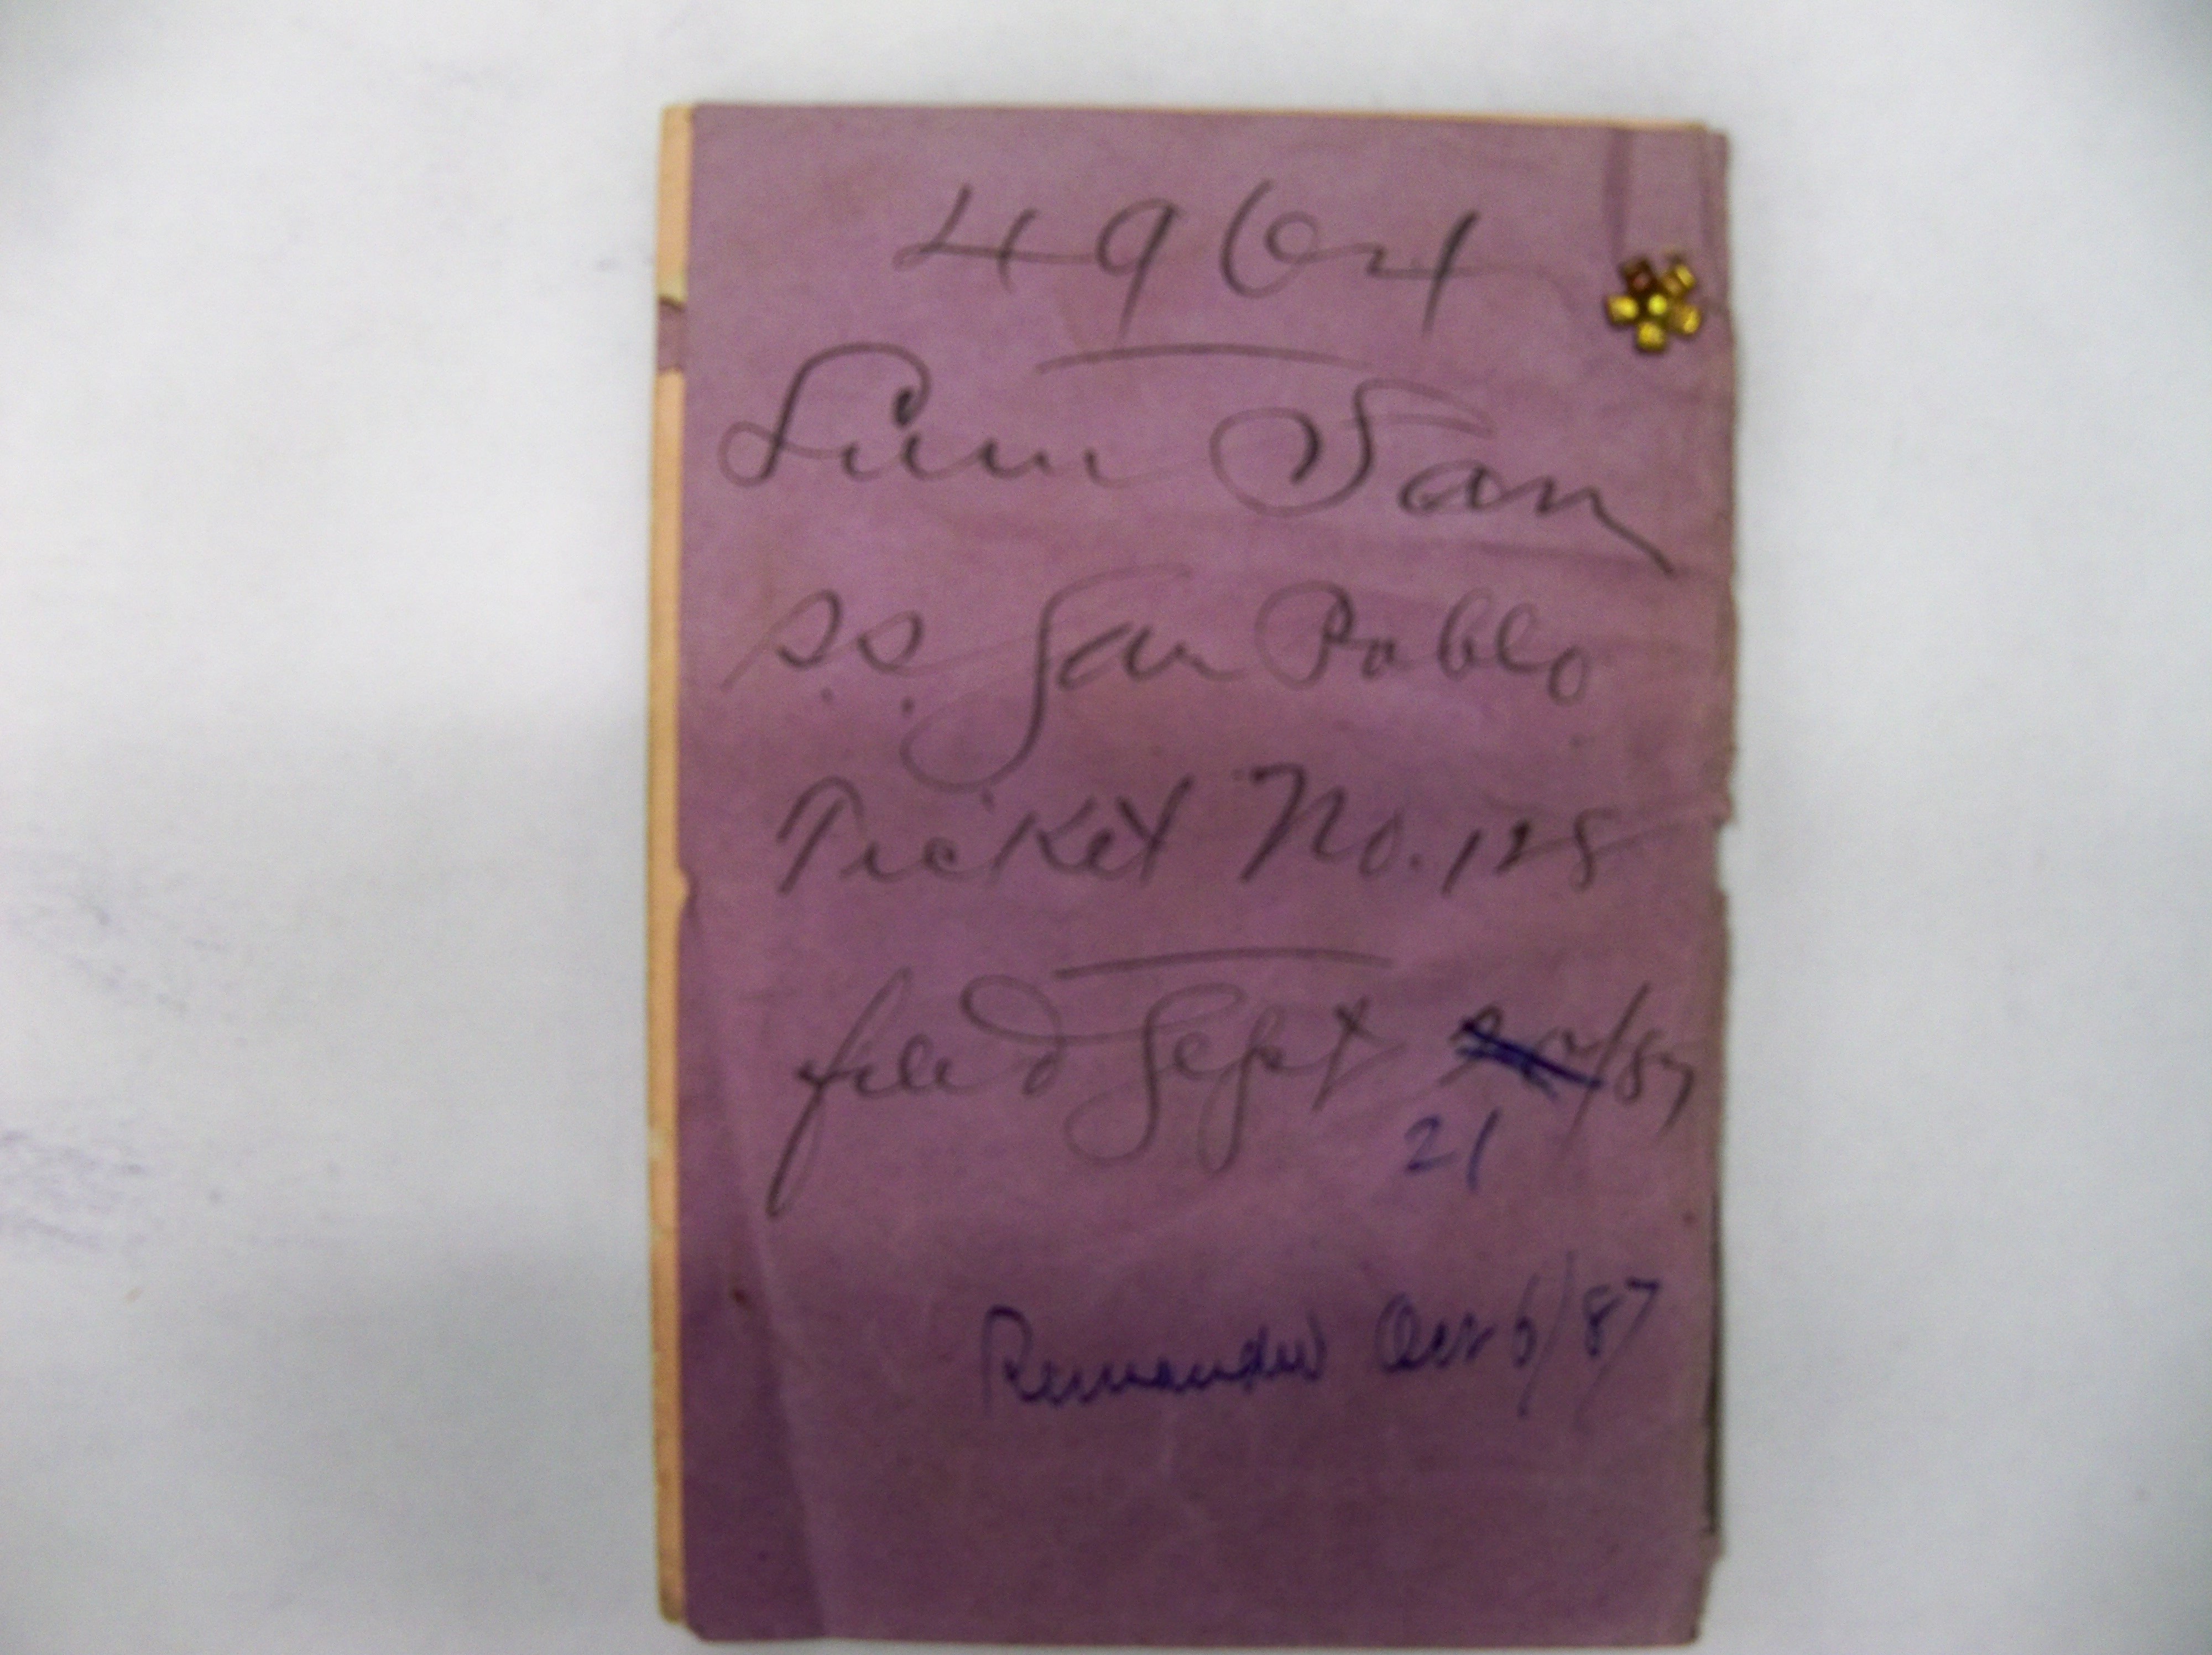 4964
Lum San
S.S. San Pablo
Ticket No. 128
filed Sept /87
21
Remanded Oct 6/87